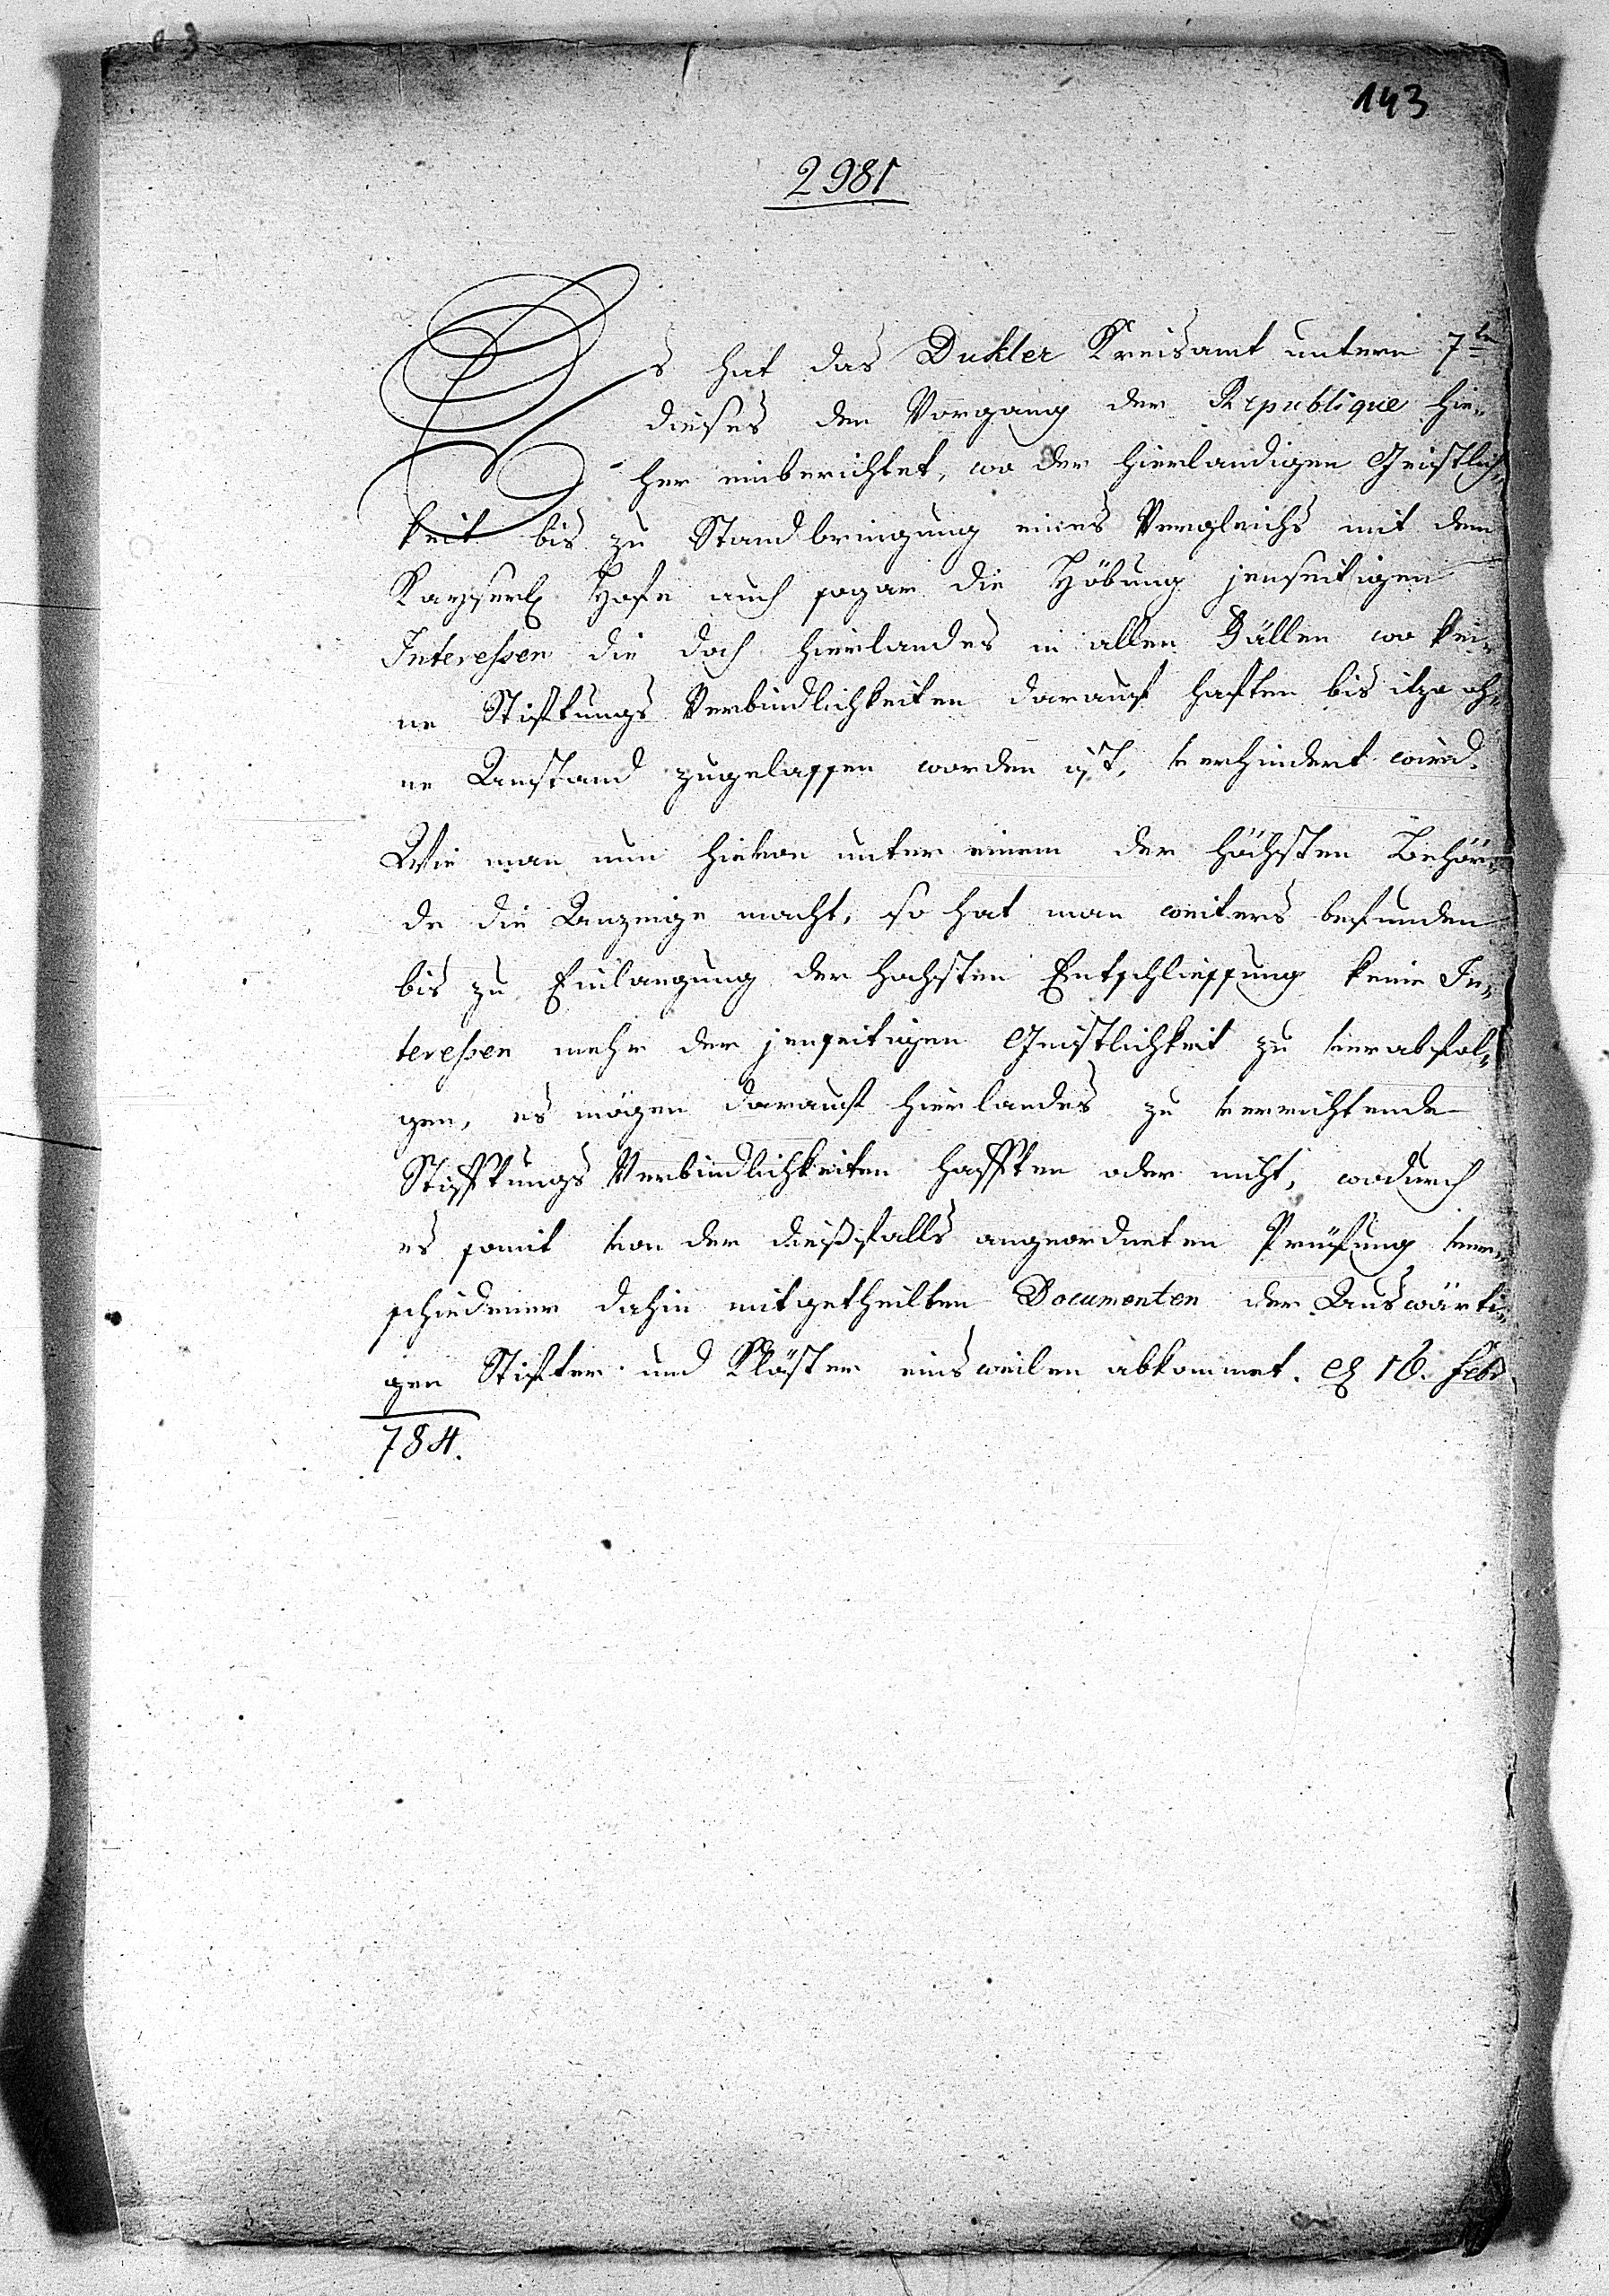 143
2981
Es hat das Dukler Kreisamt unterm 7ten
dieses den Vorgang der Republique hie,,
her einberichtet, wo der hierlandigen Geistlich,,
keit bis zu Standbringung eines Vergleichs mit dem
Kayserl Hofe auch sogar die Höbung jenseitigen
Interessen die doch hierlandes in allen Fällen wo kei,,
ne Stiftungs Verbindlichkeiten darauf haften bis itzo oh,,
ne Anstand zugelassen worden ist, verhindert wird.
Wie man nun hievon unter einem der höchsten Behör,,
de die Anzeige macht, so hat man weiters befunden
bis zu Einlangung der hochsten Entschliessung keine In,,
teressen mehr der jenseitigen Geistlichkeit zu verabfol,,
gen, es mögen darauf hierlandes zu verrichtende
Stifftungs Verbindlichkeiten hafften oder nicht, wodurch
es somit von der diesßfalls angeordneten Prüfung ver,,
schiedener dahin mitgetheilten Documenten der Auswärti,,
gen Stifter und Klöster einsweilen abkommet. 16. Feb
784.